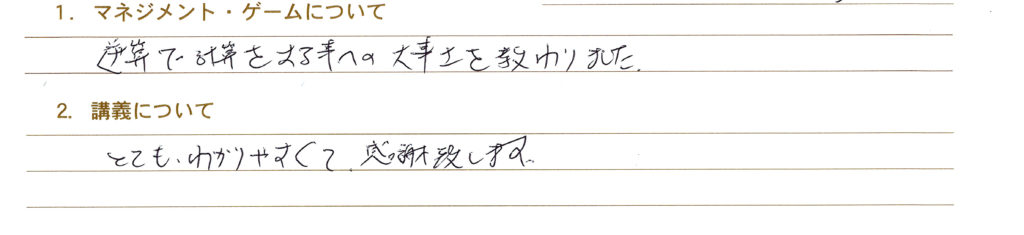 1. マネジメント・ゲームについて
逆算で計算をする事への大事さを教わりました.
2. 講義について
とても、わかりやすくて、感謝致します。